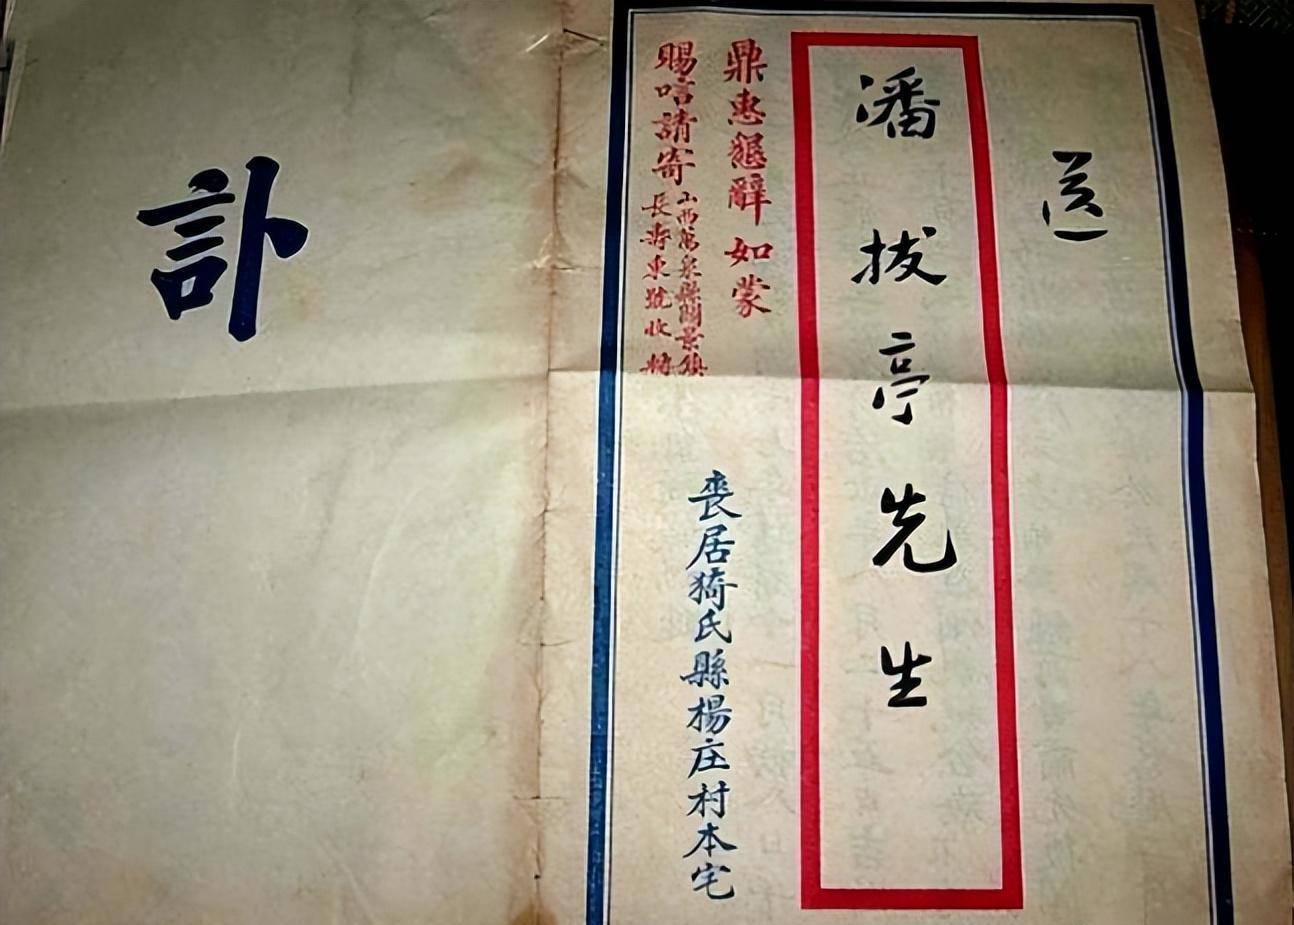 送
潘拔亭先生
鼎惠懇辭如蒙
賜唁請寄
山西萬泉縣閻景鎮
長壽東號收轉
喪居猗氏縣楊庄村本宅
訃